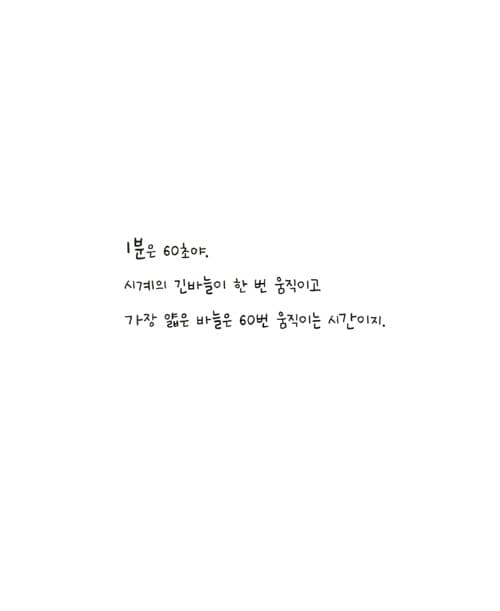 1분은 60초야.
시계의 긴바늘이 한 번 움직이고
가장 얇은 바늘은 60번 움직이는 시간이지.